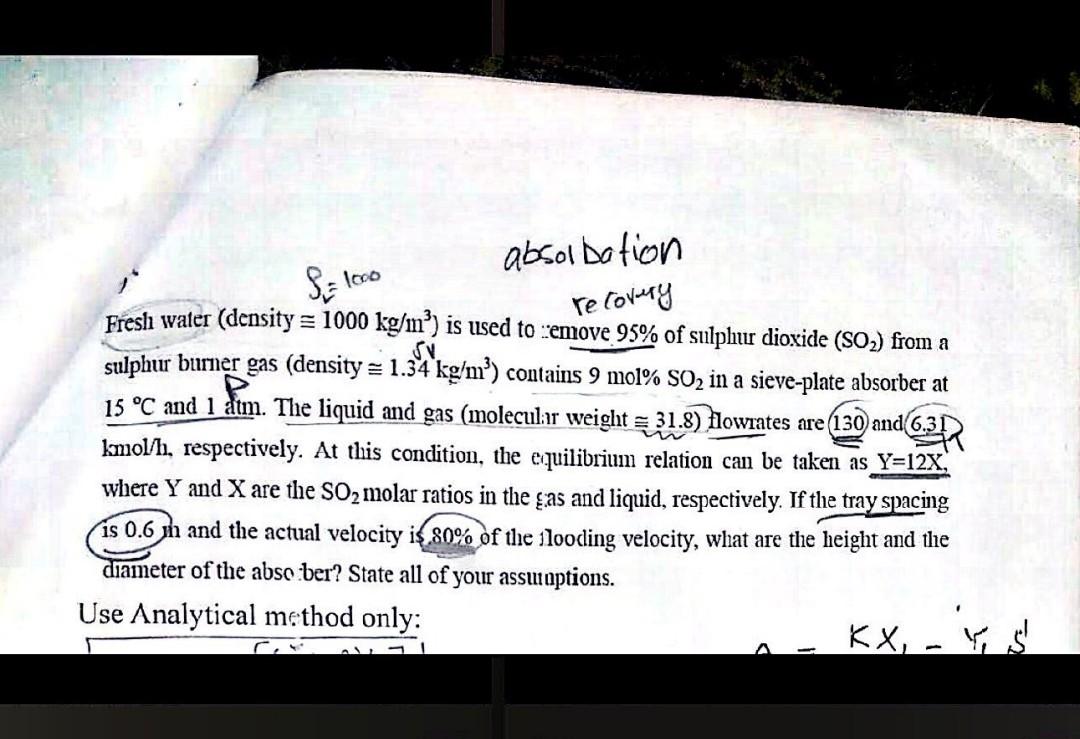 absolbation
ρL= 1000
recovery
Fresh water (density ≅ 1000 kg/m³) is used to remove 95% of sulphur dioxide (SO₂) from a
ρV
sulphur burner gas (density ≅ 1.34 kg/m³) contains 9 mol% SO₂ in a sieve-plate absorber at
P
15 °C and 1 atm. The liquid and gas (molecular weight ≅ 31.8) flowrates are 130 and 6.31
kmol/h, respectively. At this condition, the equilibrium relation can be taken as Y=12X,
where Y and X are the SO₂ molar ratios in the gas and liquid, respectively. If the tray spacing
is 0.6 m and the actual velocity is 80% of the flooding velocity, what are the height and the
diameter of the absorber? State all of your assumptions.
Use Analytical method only:
KX₁ - Y₁